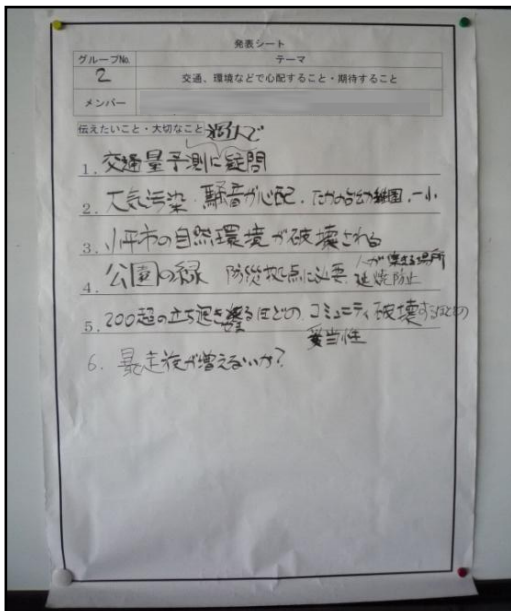 発表シート
グループNo.
テーマ
2
交通、環境などで心配すること・期待すること
メンバー
伝えたいこと・大切なこと
1. 交通量予測に疑問
2. 大気汚染・騒音が心配、たかの台幼稚園、一小
3. 小平市の自然環境が破壊される
4. 公園の緑 防災拠点に必要、人が集まる場所
延焼防止
5. 200超の立ち退き するほどの コミュニティ破壊するほどの
妥当性
6. 暴走族が増えないか?